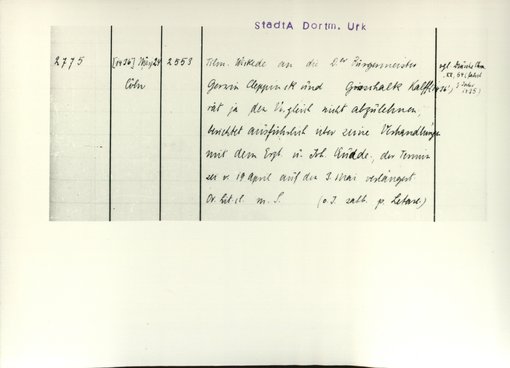 StadtA Dortm. Urk
2775
[1436] März 24
Cöln
2553
Tilm. Wickede an die 2 Bürgermeister
Gerwin Cleppinck und Gosschalk Kalff
rät ja den Vergleich nicht abzulehnen,
berichtet ausführlich über seine Verhandlungen
mit dem Erzb. u. Joh. Cudde, der Termin
sei v. 19 April auf den 3. Mai verlängert
Or. Lit. cl. m. S. (o. J. sabb. p. Letare)
vgl.
XX, 64